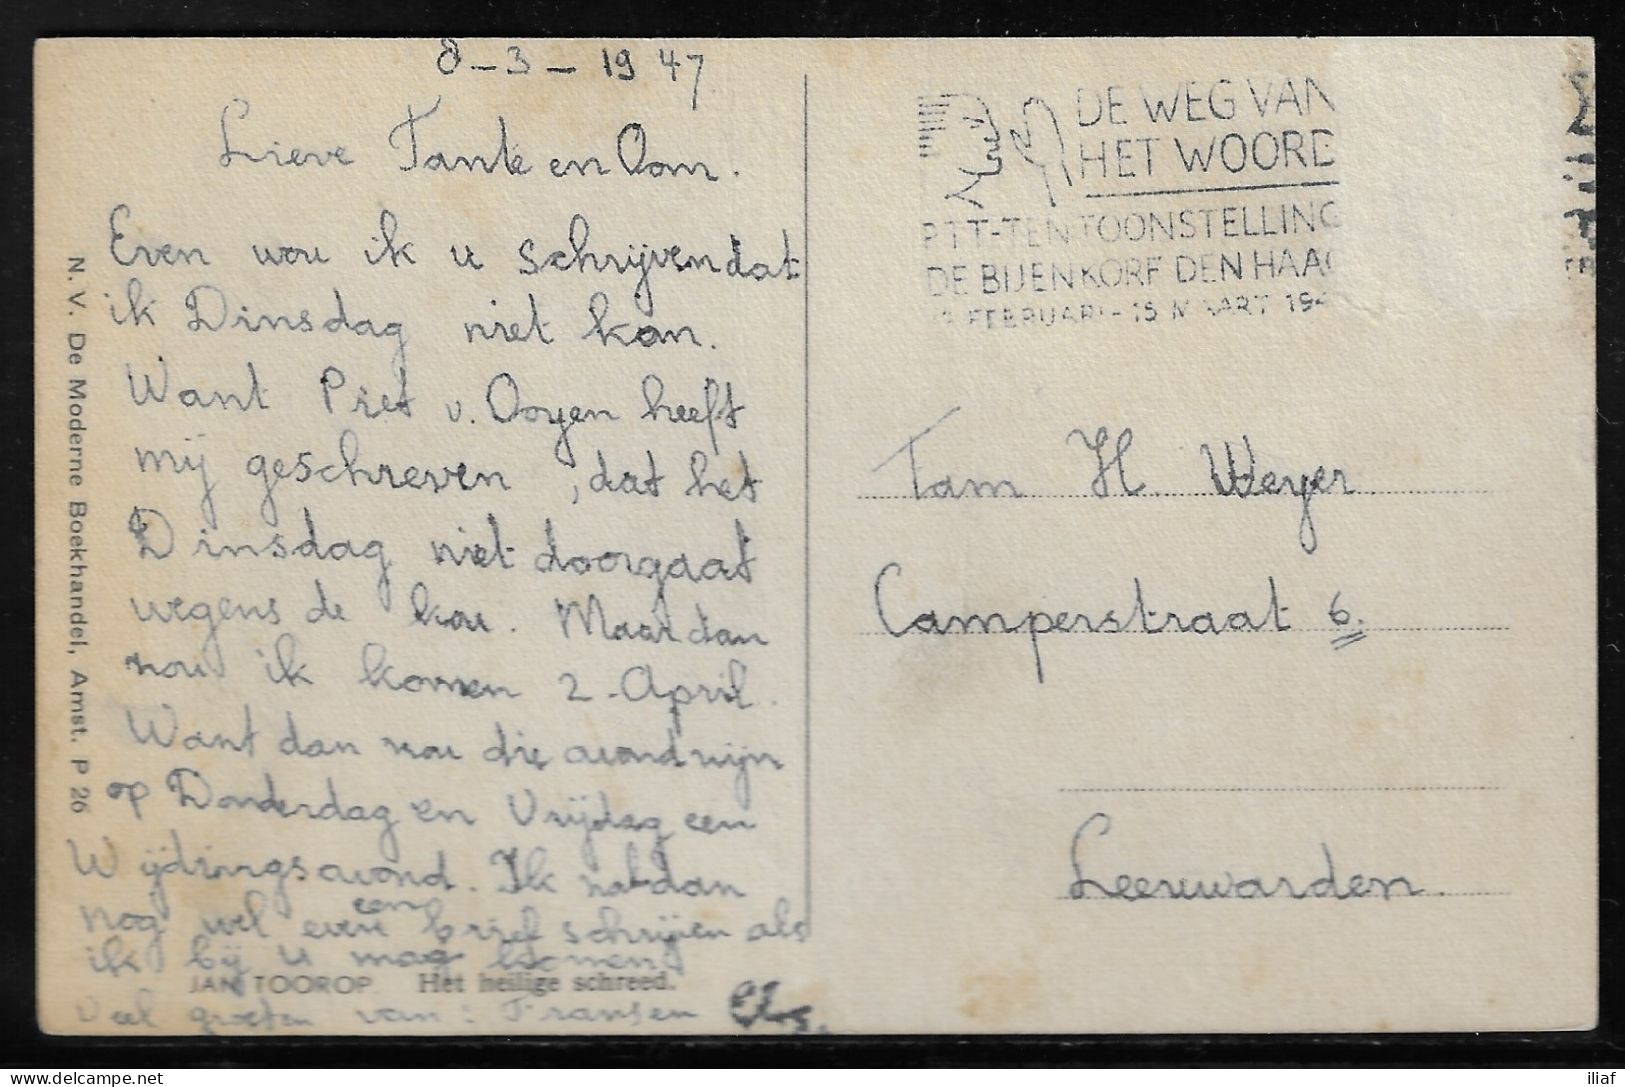 8-3-1947
Lieve Tante en Oom.
Even wou ik u schrijven dat
ik Dinsdag niet kan.
Want Piet v. Ooyen heeft
mij geschreven, dat het
Dinsdag niet doorgaat
wegens de kou. Maar dan
wou ik komen 2-April.
Want dan wou die avond zijn
op Donderdag en Vrijdag een
Wijdingsavond. Ik zal dan
nog wel even een brief schrijven als
ik bij u mag komen
JAN TOOROP. Het heilige schreed.
Veel groeten van: Fransen
N.V. De Moderne Boekhandel, Amst. P 26
DE WEG VAN
HET WOORD
PTT-TENTOONSTELLING
DE BIJENKORF DEN HAAG
FEBRUARI - 15 MAART 194
Fam H. Weyer
Camperstraat 6.
Leeuwarden.
iliaf